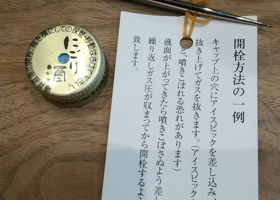 開栓方法の一例
キャップ上の穴にアイスピックを差し込み、
抜き上げてガスを抜きます。（アイスピック
と、噴きこぼれる恐れがあります）
液面が上がってきたら噴きこぼさぬよう差し
繰り返しガス圧が収まってから開栓するよ
致します。
にごり
酒